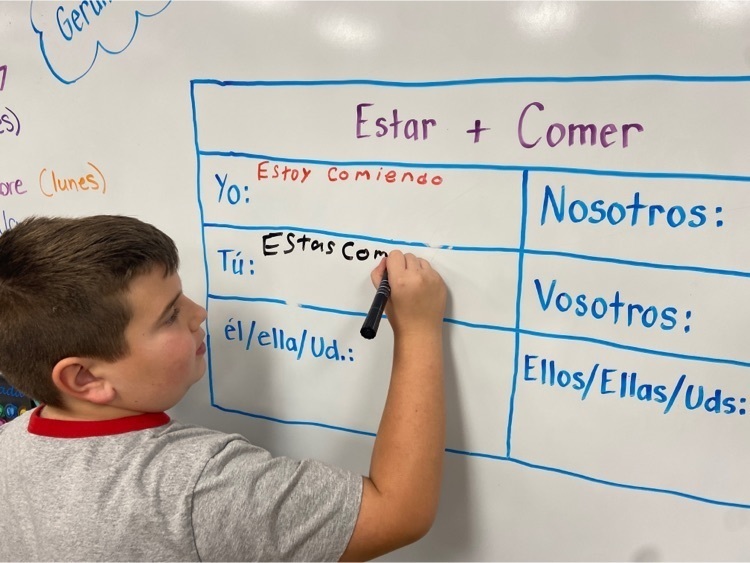 Estar + Comer
es)
ore (lunes)
Yo: Estoy comiendo
Nosotros:
Tú: Estas com
Vosotros:
él/ella/Ud.:
Ellos/Ellas/Uds: